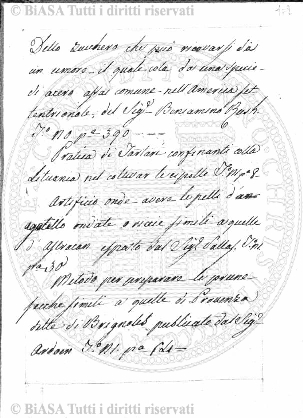 © BIASA Tutti i diritti riservati
Dello Zucchero che può ricavarsi da
un umore il quale cola da una specie
di acero assai comune nell'America set
tentrionale, del Sig.r Beniamino Rush
T.o pa 390
Pratica di Tartari confinanti alla
Lituania nel coltivar le
Artificio onde avere le pelli d'an
agnello ondate o riccie simili a quelle
d'Astracan
pra 30
Metodo per preparare le prune
secche simili a quelle di Provenza
dette di Brignoles publicato dal Sig.r
Ardoin
© BIASA Tutti i diritti riservati